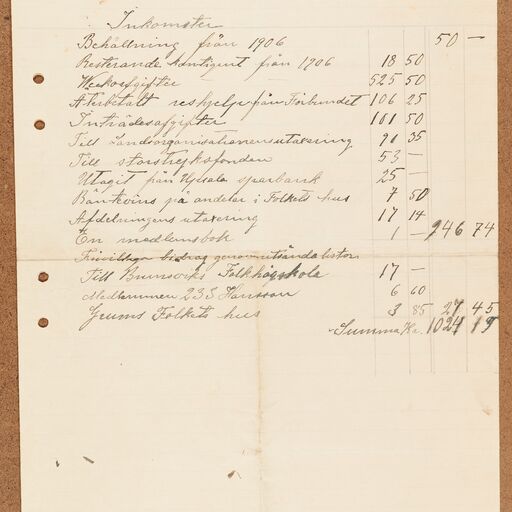 Inkomster
Behållning från 1906 50 —
Resterande kontigent från 1906 18 50
Veckoafgifter 525 50
Återbetalt reshjelp från Förbundet 106 25
Inträdesafgifter 101 50
Till Landsorganisationens utaxering 91 35
Till storstrejksfonden 53 —
Utagit från Upsala sparbank 25 —
Bänkvins på andelar i Folkets hus 7 50
Afdelningens utaxering 17 14
En medlemsbok 1 — 946 74
Frivilliga bidrag genom utsända listor
Till Brunsviks Folkhögskola 17 —
Medlemmen 233 Hansson 6 60
Grums Folkets hus 3 85 27 45
Summa Kr. 1024 19